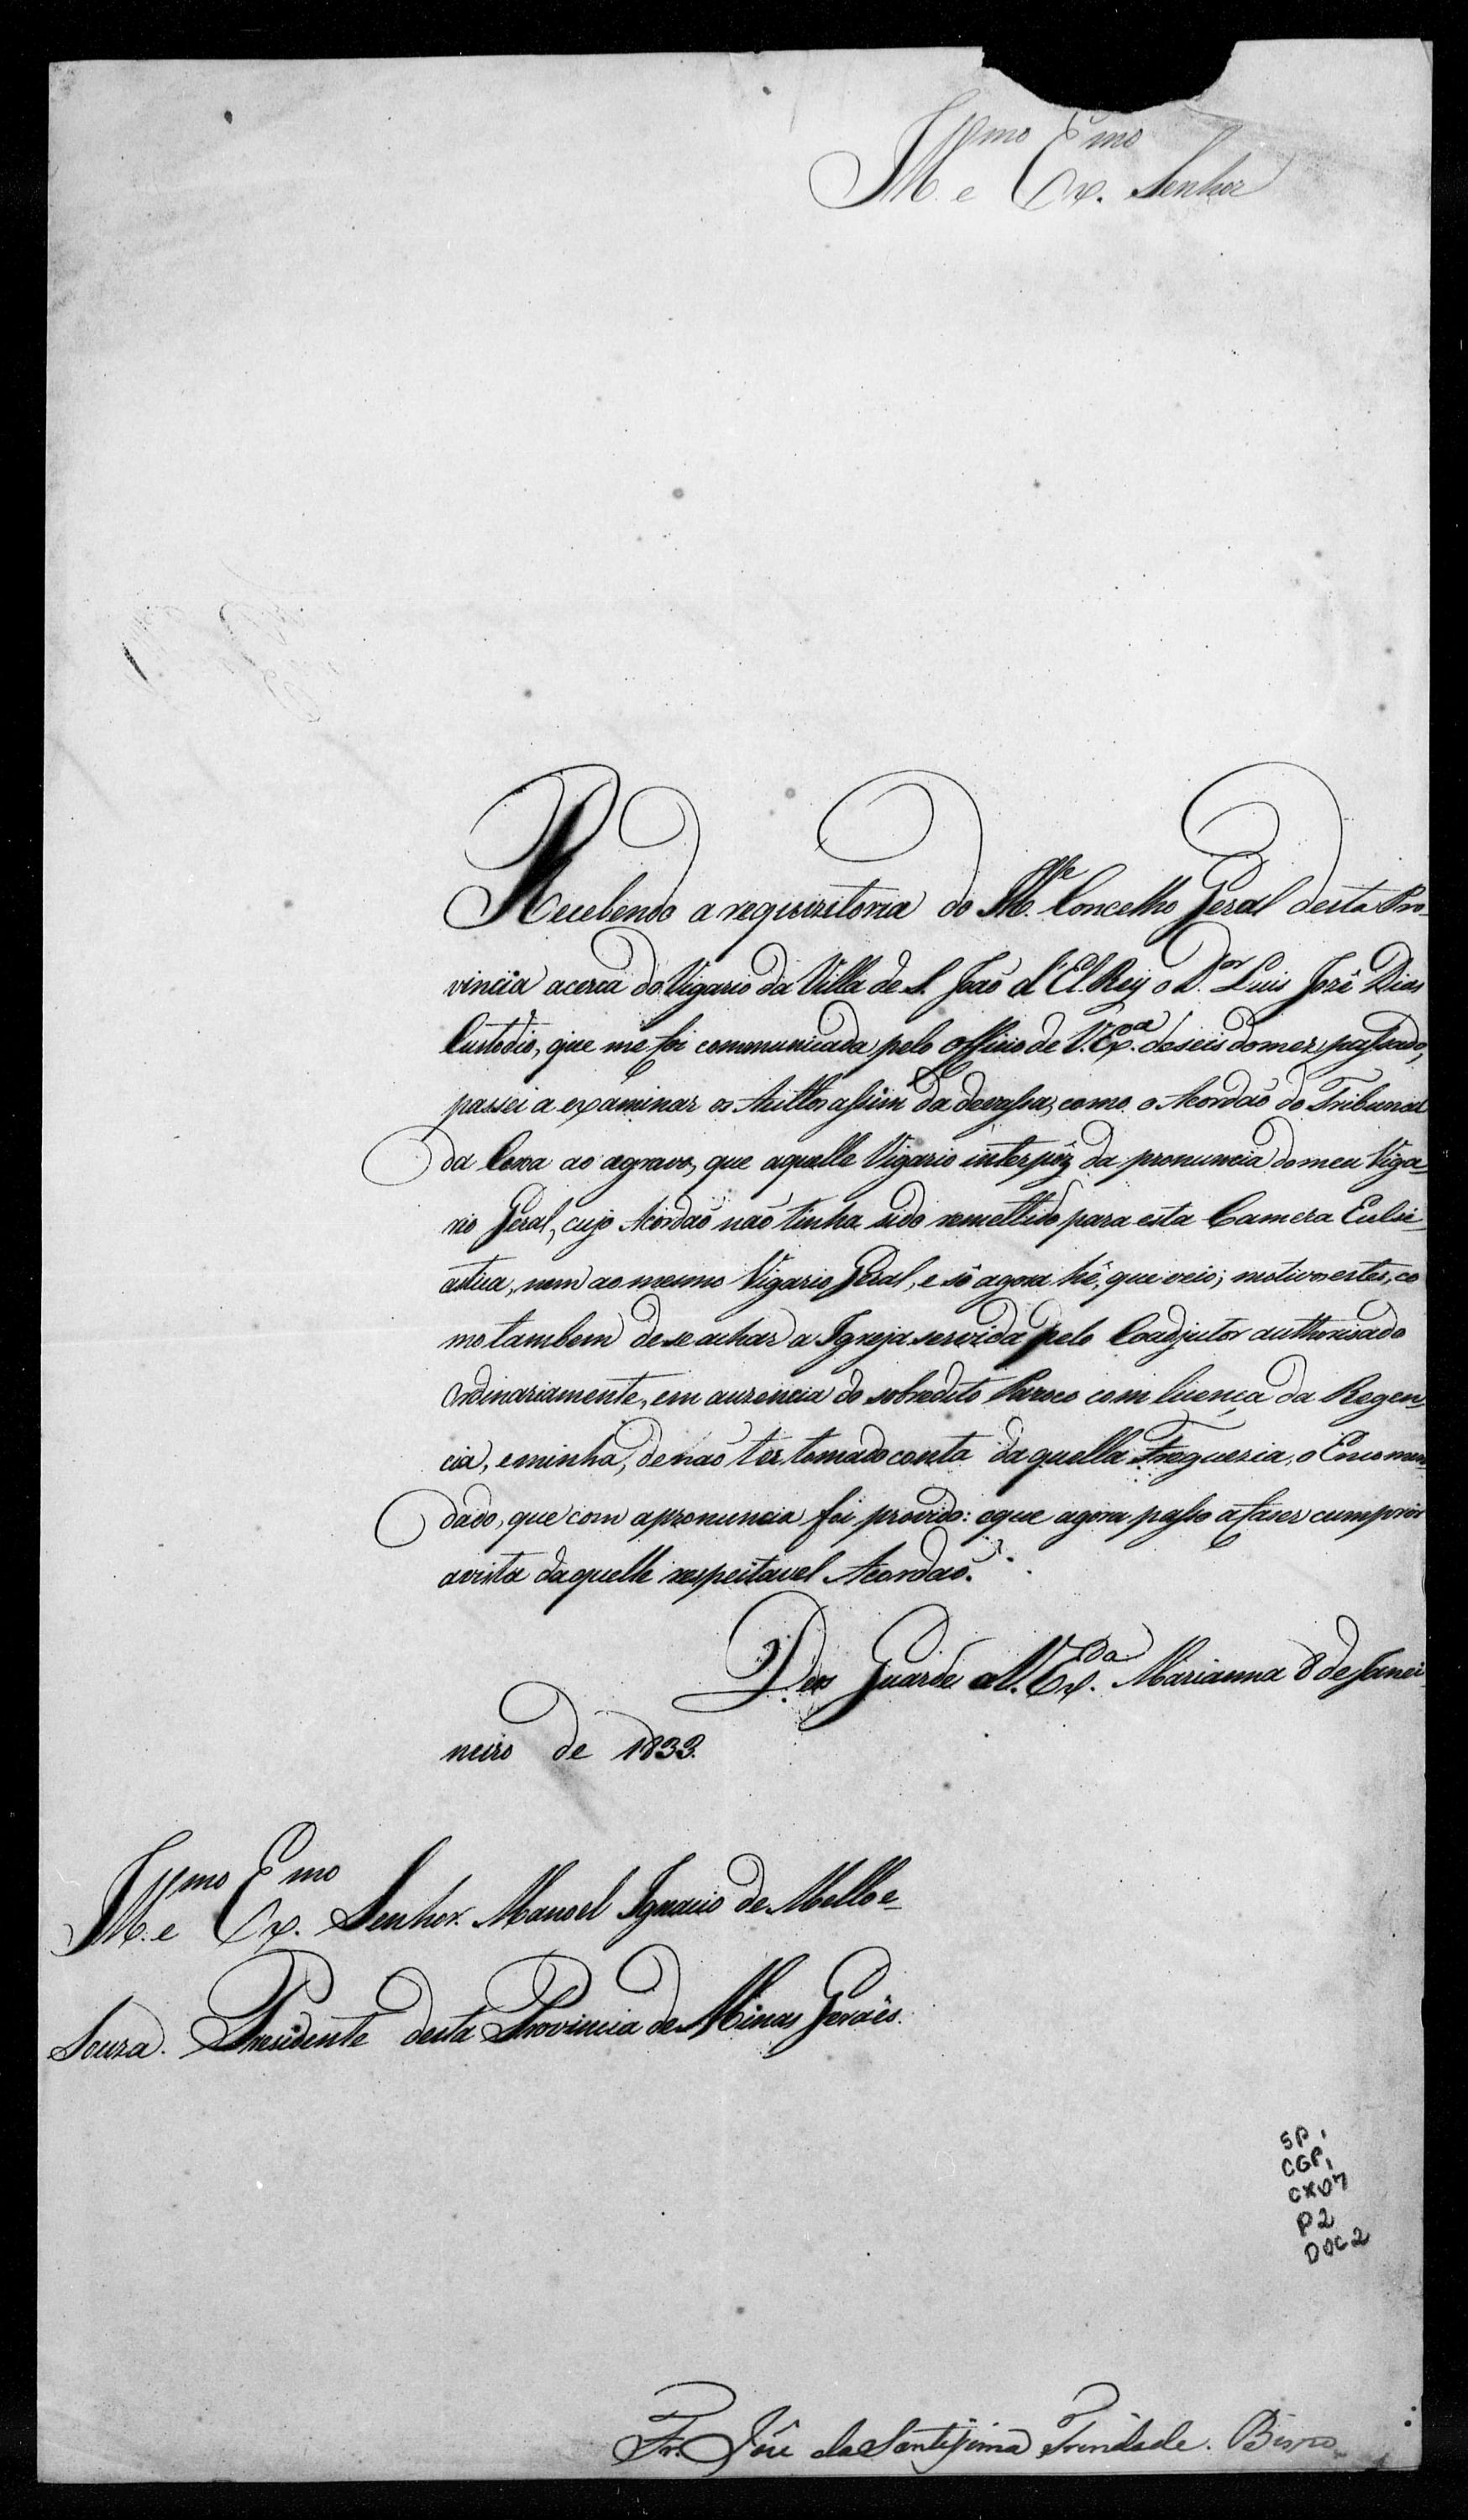 Illmo e Exmo Senhor
Recebendo a requizitoria do Illte. Concelho Geral desta Pro-
vincia acerca do Vigario da Villa de S. João d'El-Rey o Dor Luis José Dias
Custodio, que me foi communicada pelo officio de V. Exa. de seis do mez passado,
passei a examinar os Authos assim da devassa, como o Acordão do Tribunal
da Coroa ao agravo, que aquelle Vigario interpôz da pronuncia do meu Viga-
rio Geral, cujo Acordão não tinha sido remettido para esta Camera Eclesi-
astica, nem ao mesmo Vigario Geral, e só agora hé, que veio; motivos estes, co
mo tambem de se achar a Igreja servida pelo Coadjutor authorisado
ordinariamente, em auzencia do sobredito Paroco com licença da Regen-
cia, e minha, de não ter tomado conta daquella Freguezia, o Encomen-
dado, que com a pronuncia foi provido: o que agora passo a faser cumprir
a vista daquelle respeitavel Acordão.
Deos Guarde a V. Exa. Marianna 8 de Janei
neiro de 1833.
Illmo e Exmo Senhor Manoel Ignacio de Mello e
Souza. Presidente desta Provincia de Minas Geraes.
SP,
CGP,
CX07
P2
DOC2
Fr. José da Santissima Trindade. Bispo